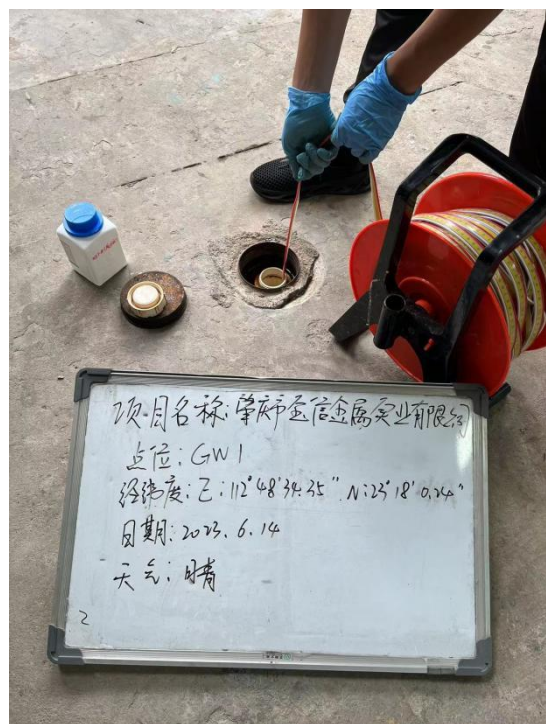 项目名称:肇庆市至信金属实业有限公司
点位:GW1
经纬度:E:112°48'34.35" N:23°18'0.24"
日期:2023.6.14
天气:晴
2